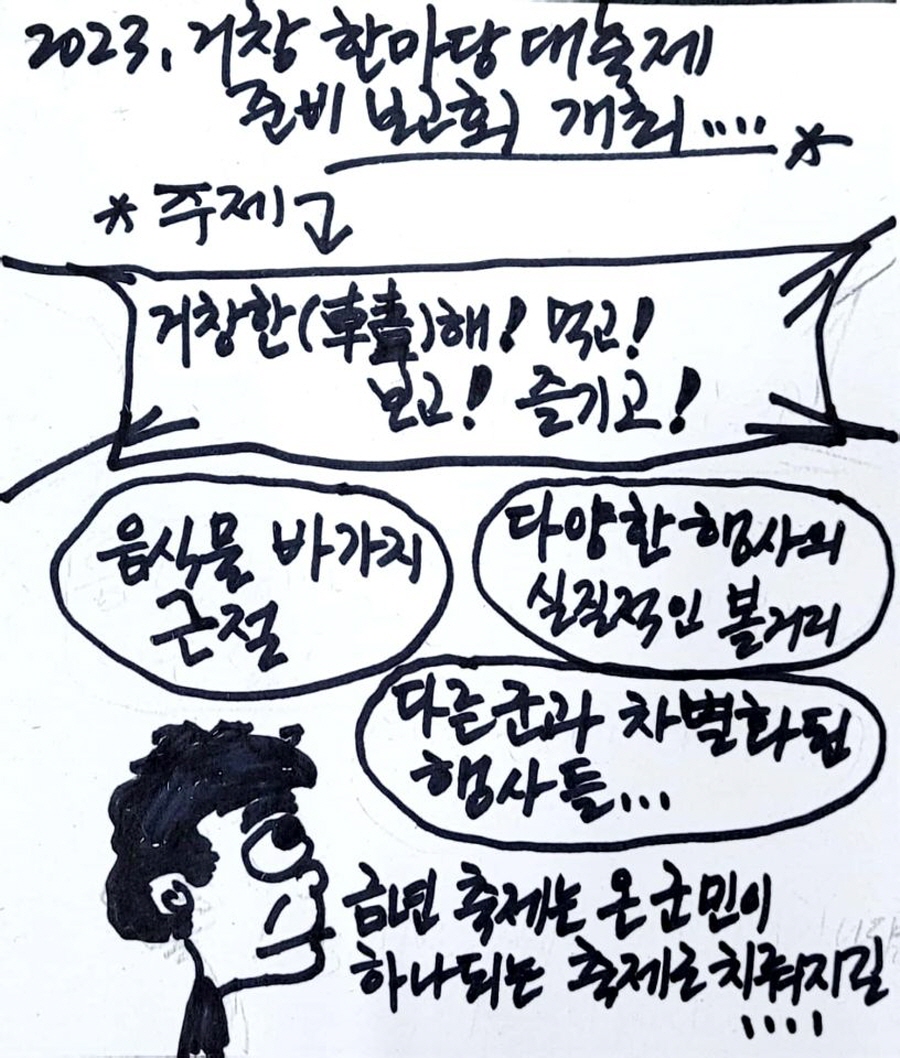 2023. 거창 한마당 대축제
준비 보고회 개최....
* 주제
거창한(韓)해! 먹고!
보고! 즐기고!
음식물 바가지
근절
다양한 행사의
실질적인 볼거리
다른군과 차별화된
행사들...
금년 축제는 온 군민이
하나되는 축제로 치뤄지길
....